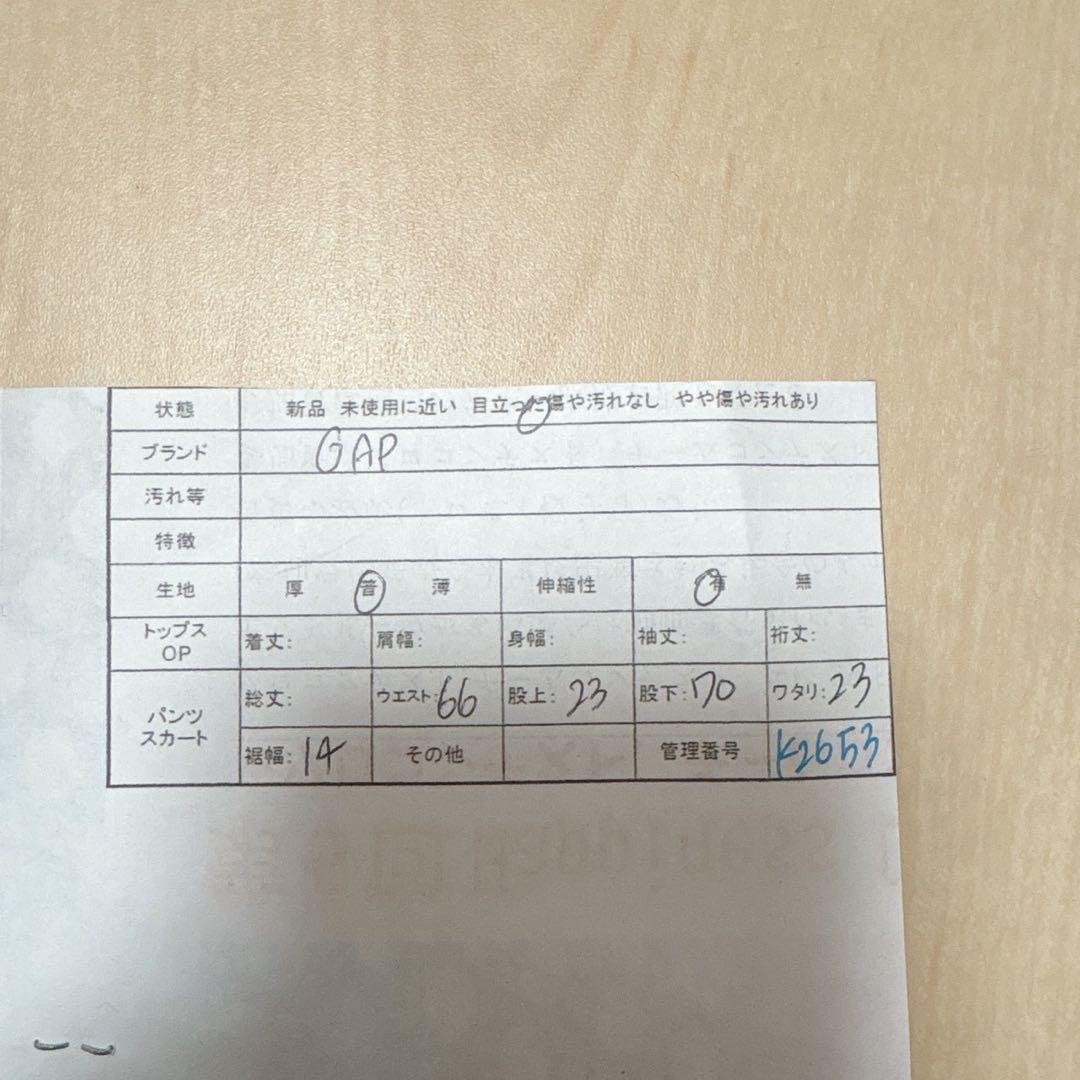 状態 新品 未使用に近い 目立った傷や汚れなし やや傷や汚れあり
ブランド GAP
汚れ等
特徴
生地 厚 普 薄 伸縮性 有 無
トップス
OP
着丈: 肩幅: 身幅: 袖丈: 裄丈:
パンツ
スカート
総丈: ウエスト:66 股上:23 股下:70 ワタリ:23
裾幅:14 その他 管理番号 K2653